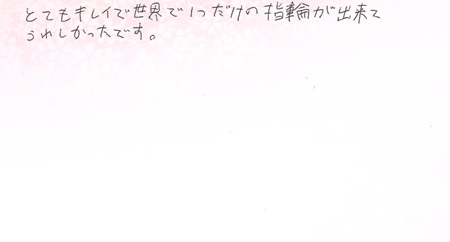 とてもキレイで世界で1つだけの指輪が出来て
うれしかったです。